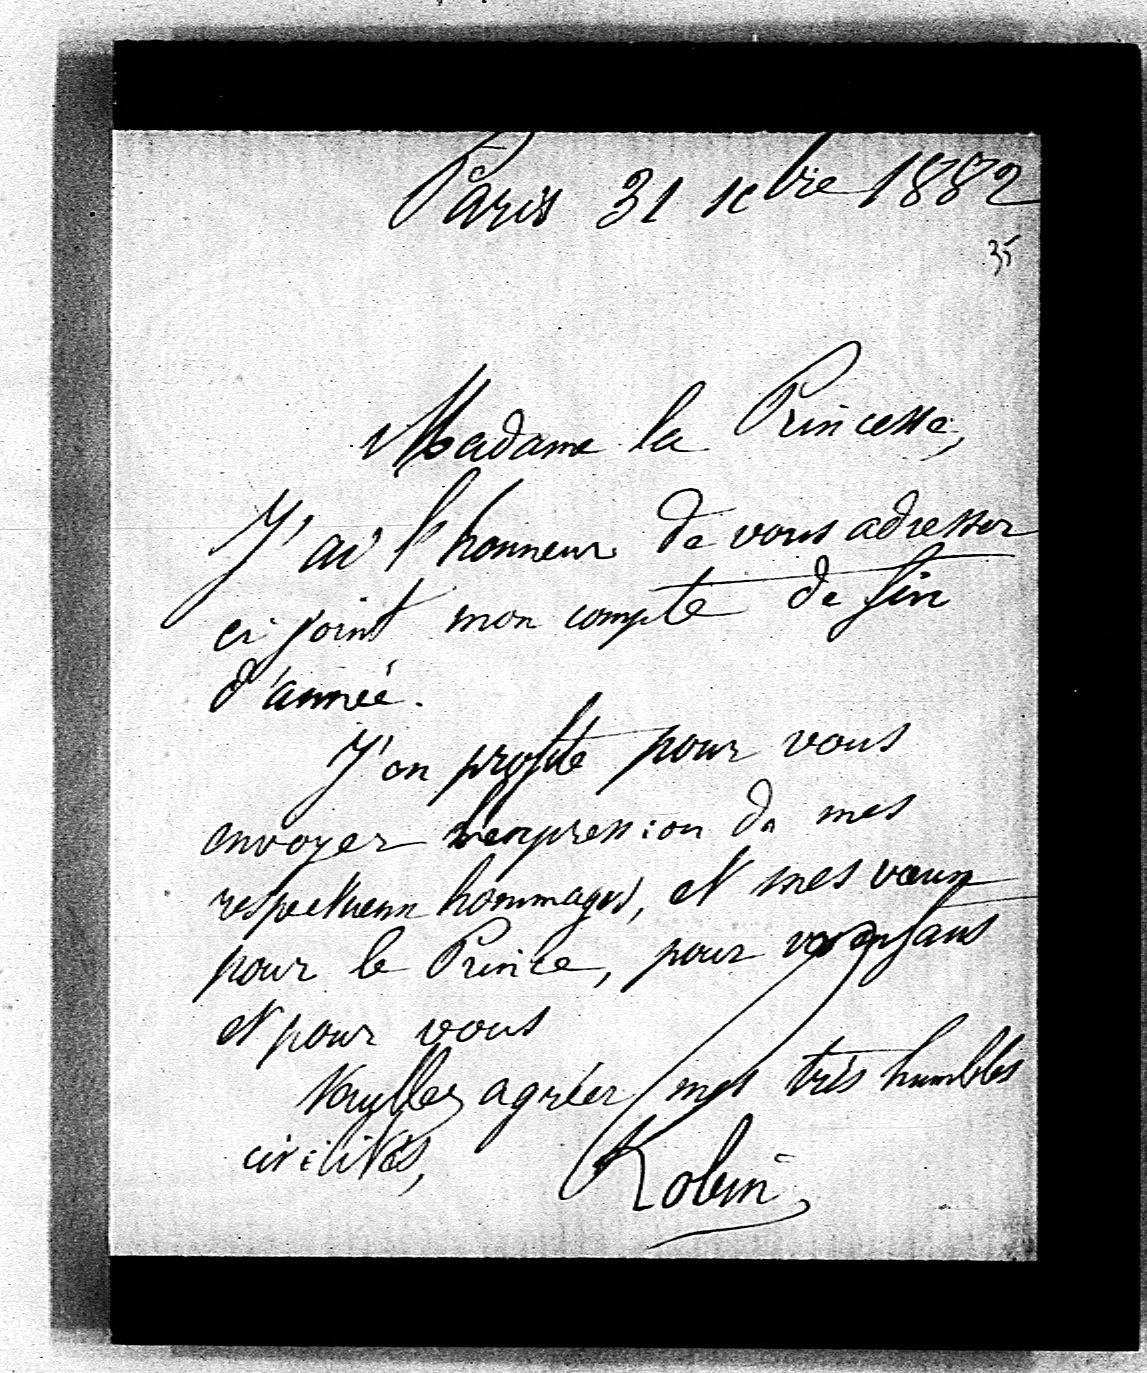 Paris 31 Xbre 1882
35
Madame la Princesse,
J'ai l'honneur de vous adresser
ci joint mon compte de fin
d'année.
J'en profite pour vous
envoyer l'expression de mes
respectueux hommages, et mes vœux
pour le Prince, pour vos enfants
et pour vous
Veuillez agréer mes très humbles
civilités,
Robin